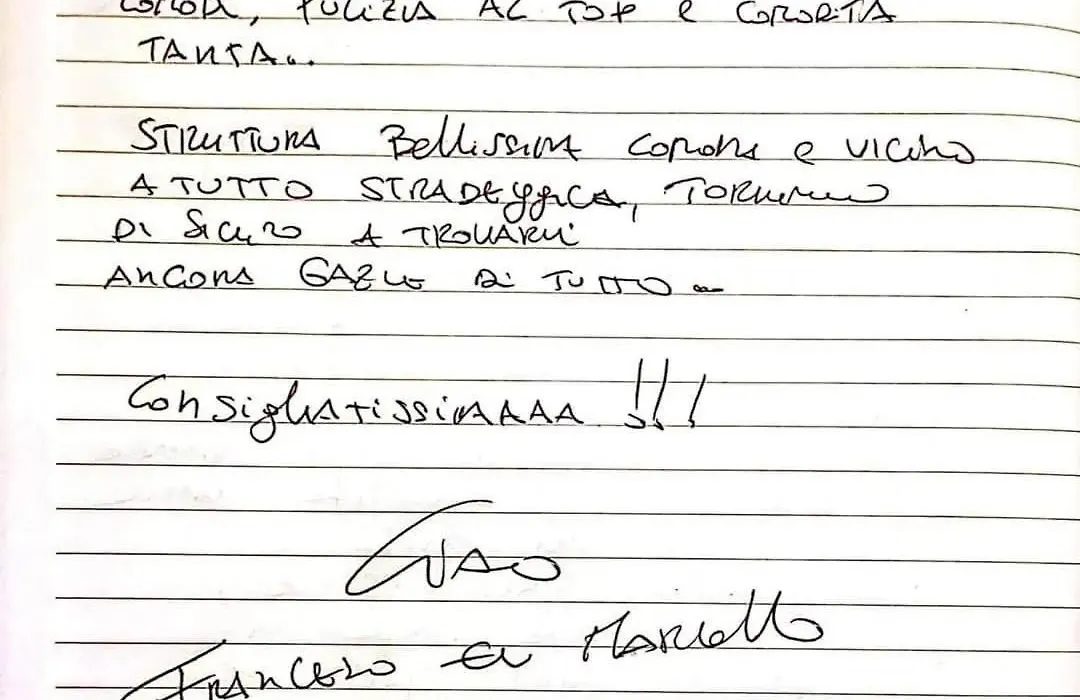 PULIZIA AL TOP e COMODITÀ
TANTA...
STRUTTURA Bellissima comoda e vicino
A TUTTO STRADEGGICA, TORNEREMO
DI SICURO A TROVARVI
ANCORA GAZIE DI TUTTO
ConsigliatissimAAAA !!!
CIAO
FRANCESCO e Marcello